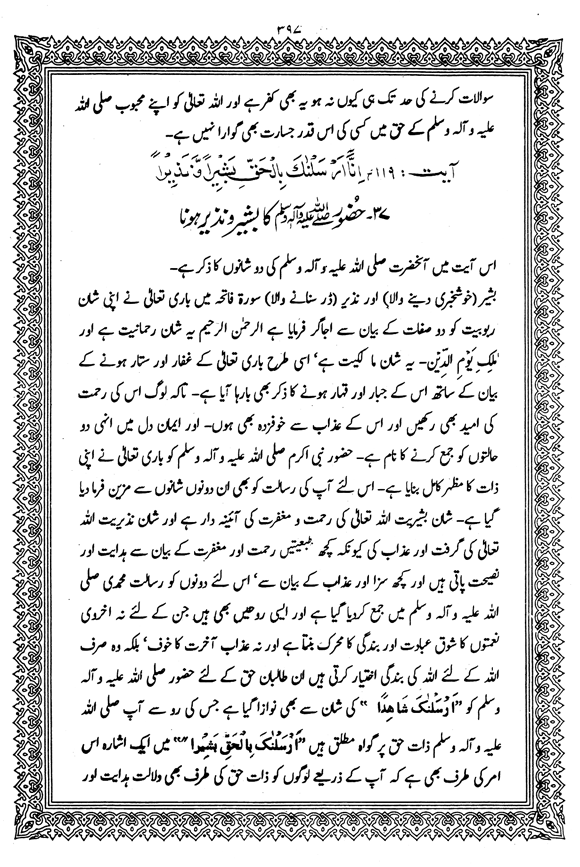 ۳۹۷
سوالات کرنے کی حد تک ہی کیوں نہ ہو یہ بھی کفر ہے اور اللہ تعالیٰ کو اپنے محبوب صلی اللہ
علیہ و آلہ وسلم کے حق میں کسی کی اس قدر جسارت بھی گوارا نہیں ہے۔
آیت: ۱۱۹، اِنَّاۤ اَرْسَلْنٰكَ بِالْحَقِّ بَشِیْرًا وَّ نَذِیْرًا
۳۷۔ حضور صلی اللہ علیہ وآلہ وسلم کا بشیر و نذیر ہونا
اس آیت میں آنحضرت صلی اللہ علیہ و آلہ وسلم کی دو شانوں کا ذکر ہے۔
بشیر (خوشخبری دینے والا) اور نذیر (ڈر سنانے والا) سورۃ فاتحہ میں باری تعالیٰ نے اپنی شان
ربوبیت کو دو صفات کے بیان سے اجاگر فرمایا ہے الرحمٰن الرحیم یہ شان رحمانیت ہے اور
مٰلِكِ یَوْمِ الدِّیْنِ۔ یہ شان مالکیت ہے‘ اسی طرح باری تعالیٰ کے غفار اور ستار ہونے کے
بیان کے ساتھ اس کے جبار اور قہار ہونے کا ذکر بھی بارہا آیا ہے۔ تاکہ لوگ اس کی رحمت
کی امید بھی رکھیں اور اس کے عذاب سے خوفزدہ بھی ہوں۔ اور ایمان دل میں انہی دو
حالتوں کو جمع کرنے کا نام ہے۔ حضور نبی اکرم صلی اللہ علیہ و آلہ وسلم کو باری تعالیٰ نے اپنی
ذات کا مظہر کامل بنایا ہے۔ اس لئے آپ کی رسالت کو بھی ان دونوں شانوں سے مزین فرما دیا
گیا ہے۔ شان بشیریت اللہ تعالیٰ کی رحمت و مغفرت کی آئینہ دار ہے اور شان نذیریت اللہ
تعالیٰ کی گرفت اور عذاب کی کیونکہ کچھ طبیعتیں رحمت اور مغفرت کے بیان سے ہدایت اور
نصیحت پاتی ہیں اور کچھ سزا اور عذاب کے بیان سے‘ اس لئے دونوں کو رسالت محمدی صلی
اللہ علیہ و آلہ وسلم میں جمع کردیا گیا ہے اور ایسی روحیں بھی ہیں جن کے لئے نہ اخروی
نعمتوں کا شوق عبادت اور بندگی کا محرک بنتا ہے اور نہ عذاب آخرت کا خوف‘ بلکہ وہ صرف
اللہ کے لئے اللہ کی بندگی اختیار کرتی ہیں ان طالبان حق کے لئے حضور صلی اللہ علیہ و آلہ
وسلم کو ”اَرْسَلْنٰكَ شَاهِدًا“ کی شان سے بھی نوازا گیا ہے جس کی رو سے آپ صلی اللہ
علیہ و آلہ وسلم ذات حق پر گواہ مطلق ہیں ”اَرْسَلْنٰكَ بِالْحَقِّ بَشِیْرًا“ میں ایک اشارہ اس
امر کی طرف بھی ہے کہ آپ کے ذریعے لوگوں کو ذات حق کی طرف بھی دلالت ہدایت اور